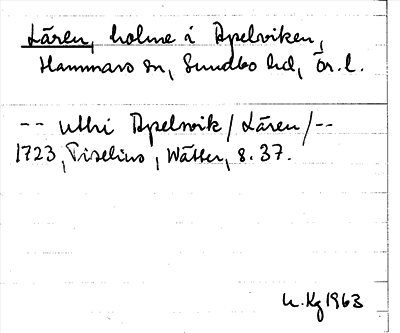 Låren, holme i Apelviken,
Hammars sn, Sundbo hd, Ör. l.
-- uthi Apelwik /Låren/--
1723, Tiselius, Wätter, s. 37.
Kg 1963